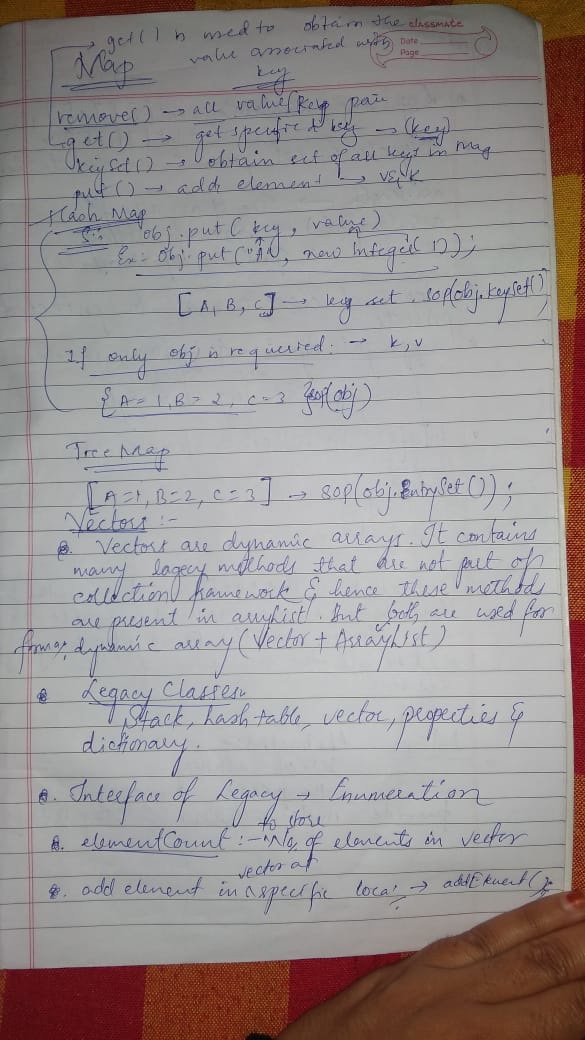 → get() is used to obtain the
classmate
value associated with
key
Date
Page
Map
remove() → all value/key pair
get() → get specific key → (key)
keySet() → obtain set of all keys in Map
put() → adds element → v & k
Hash Map
S:- obj.put( key , value)
Ex:- obj.put("A", new Integer( 1));
[A, B, C] → key set . sop(obj.keyset()
If only obj is requeried: → k, v
{A=1, B=2, C=3} sop(obj)
Tree Map
[A=1, B=2, C=3] → sop(obj.EntrySet());
Vectors :-
Vectors are dynamic arrays. It contains
many lagecy methods that are not part of
collection framework & hence these methods
are present in arrylist. But both are used for
dynamic array (Vector + ArrayList)
Legacy Classes
Stack, hash table, vector, properties &
dictionary.
Interface of Legacy → Enumeration
to store
elementCount :- No, of elements in vector
vector at
add element in a specific loca → addElement()